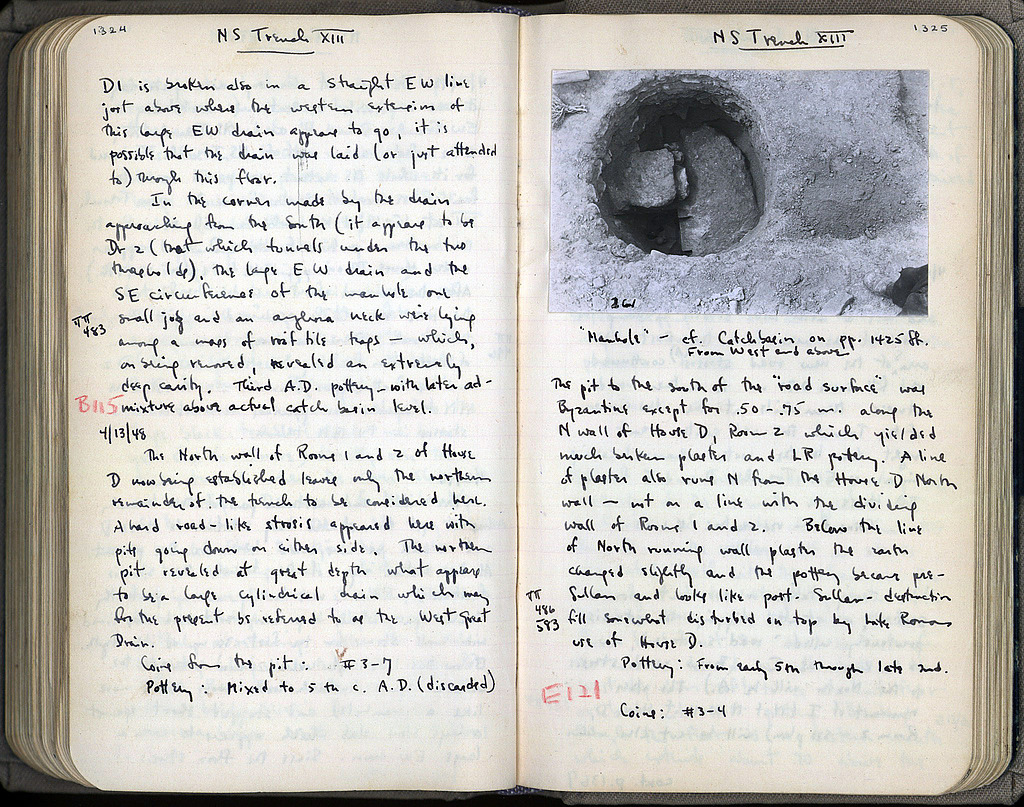 1324
NS Trench XIII
D1 is broken also in a straight EW line
just above where the western extension of
this large EW drain appears to go, it is
possible that the drain was laid (or just attended
to) through this floor.
In the corner made by the drain
approaching from the South (it appears to be
Dr 2 (that which tunnels under the two
thresholds), the large EW drain and the
SE circumference of the manhole one
ΠΠ 483
small jug and an amphora neck were lying
among a mass of roof tile frags – which,
on being removed, revealed an extremely
deep cavity. Third A.D. pottery – with later ad-
B115
mixture above actual catch basin level.
4/13/48
The North wall of Rooms 1 and 2 of House
D now being established leaves only the northern
remainder of the trench to be considered here.
A hard road-like strosis appeared here with
pits going down on either side. The northern
pit revealed at great depth what appears
to be a large cylindrical drain which may
for the present be referred to as the West Great
Drain.
Coins from the pit: #3-7
Pottery: Mixed to 5th c. A.D. (discarded)
1325
NS Trench XIII
261
"Manhole" – cf. Catchbasin on pp. 1425 ff.
From West and above
The pit to the south of the "road surface" was
Byzantine except for .50 – .75 m. along the
N wall of House D, Room 2 which yielded
much broken plaster and LR pottery. A line
of plaster also runs N from the House D North
wall – not on a line with the dividing
wall of Rooms 1 and 2. Below the line
of North running wall plaster the earth
changed slightly and the pottery became pre-
Sullan and looks like post-Sullan-destruction
ΠΠ 486 583
fill somewhat disturbed on top by late Roman
use of House D.
Pottery: From early 5th through late 2nd.
E121
Coins: #3-4